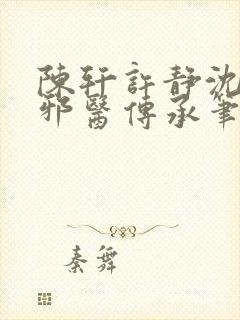 陳軒許靜沈
邪醫傳承筆
秦舞